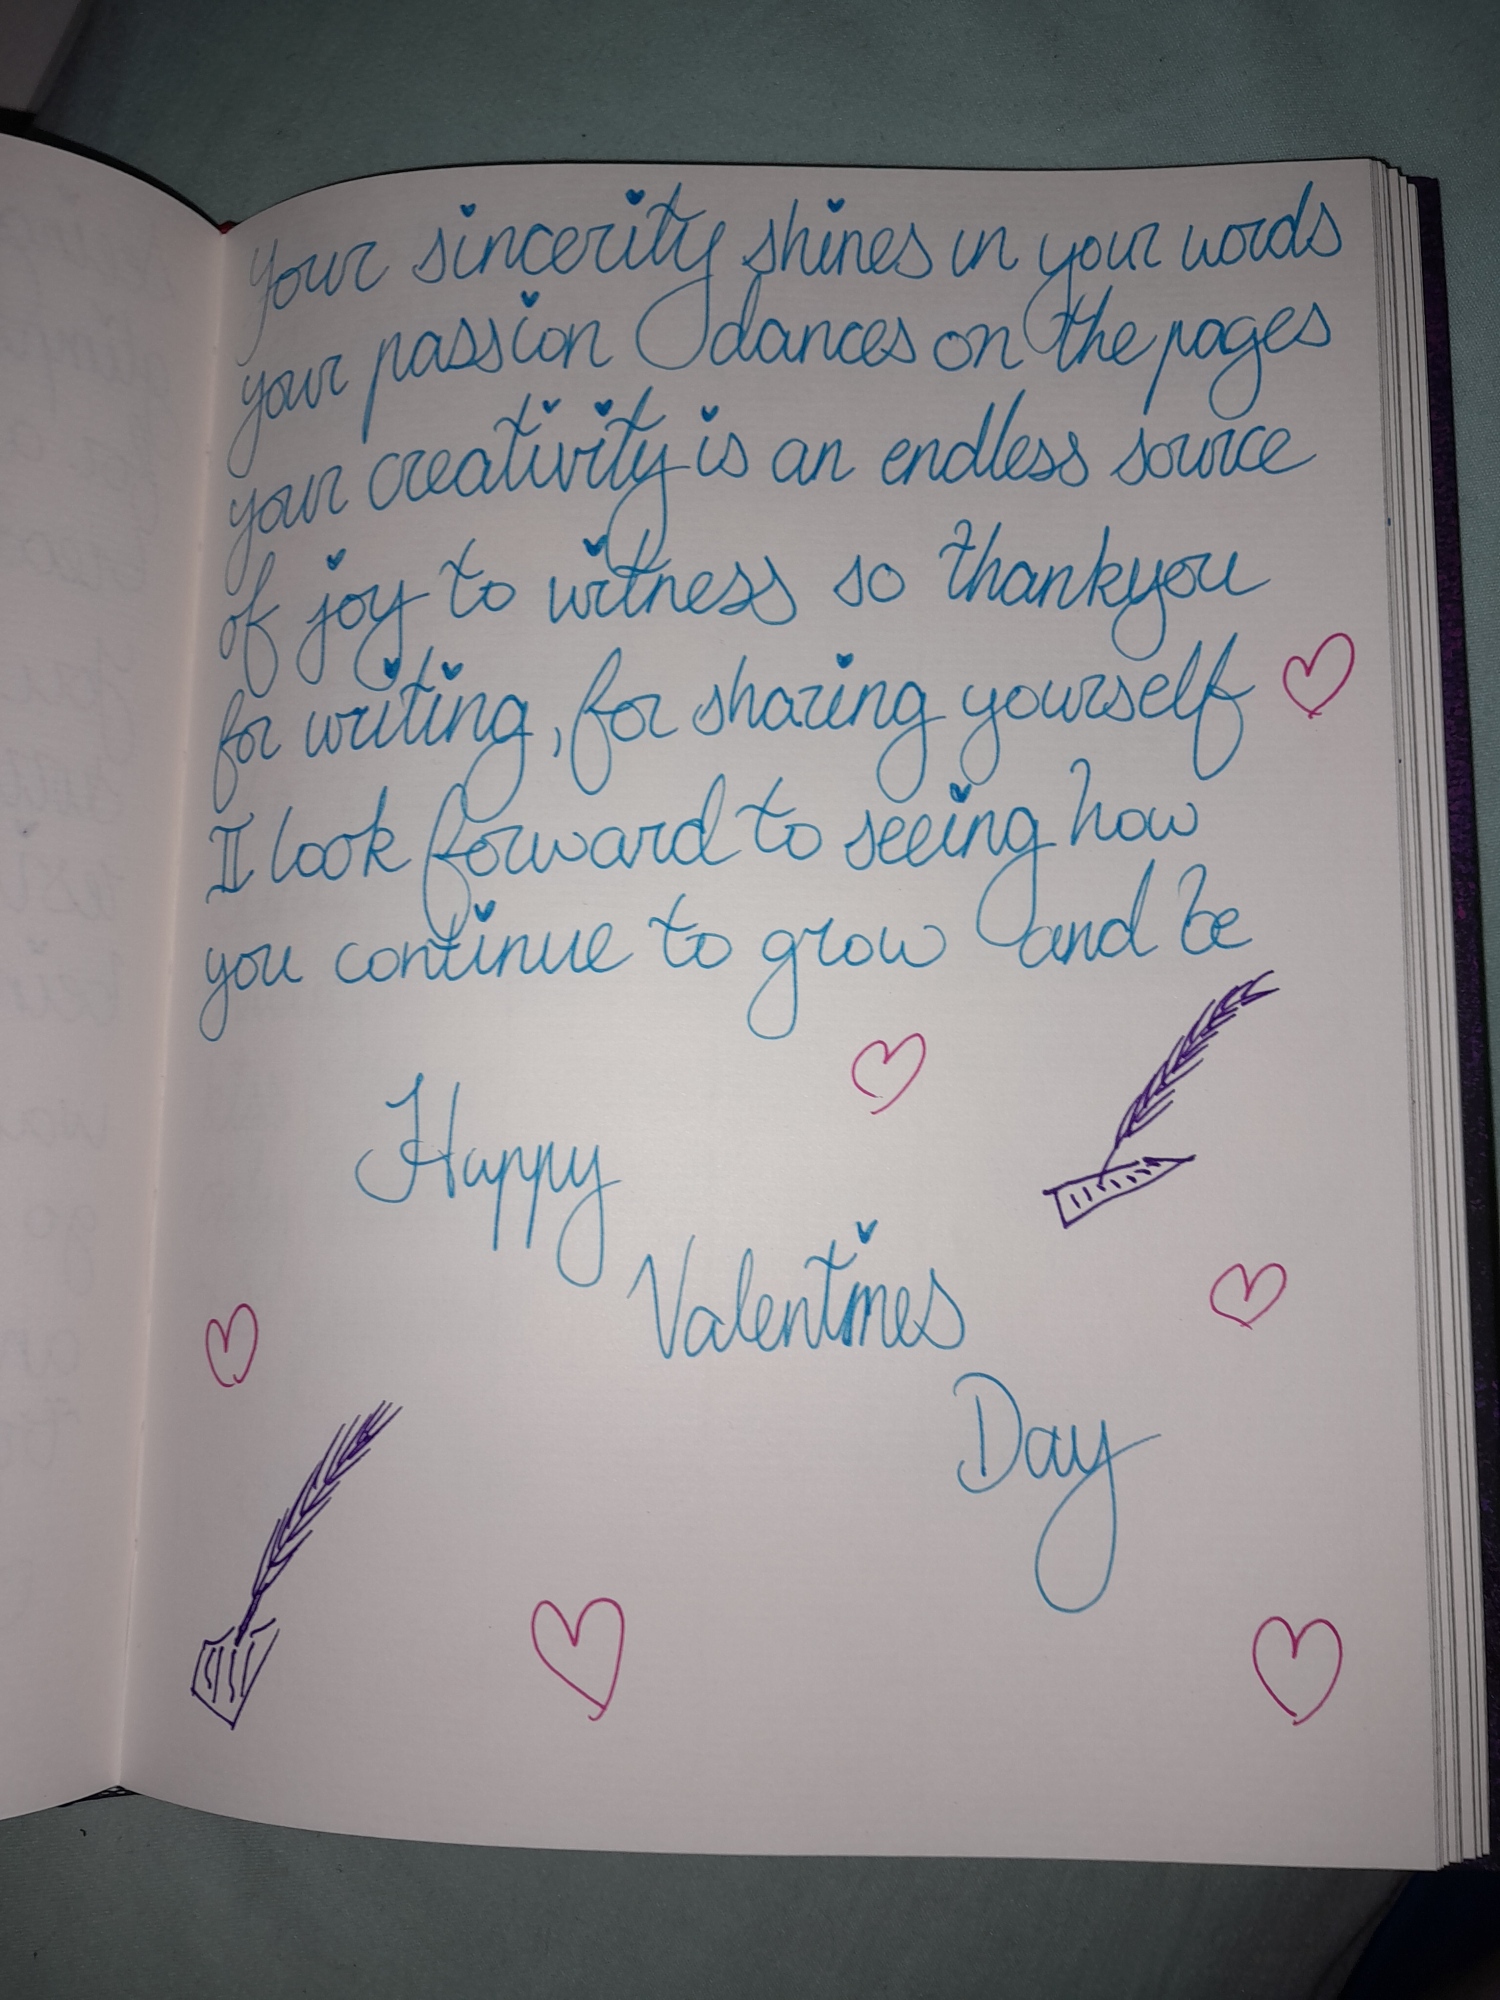 your sincerity shines in your words
your passion dances on the pages
your creativity is an endless source
of joy to witness so thankyou
for writing, for sharing yourself
I look forward to seeing how
you continue to grow and be
Happy
Valentines
Day